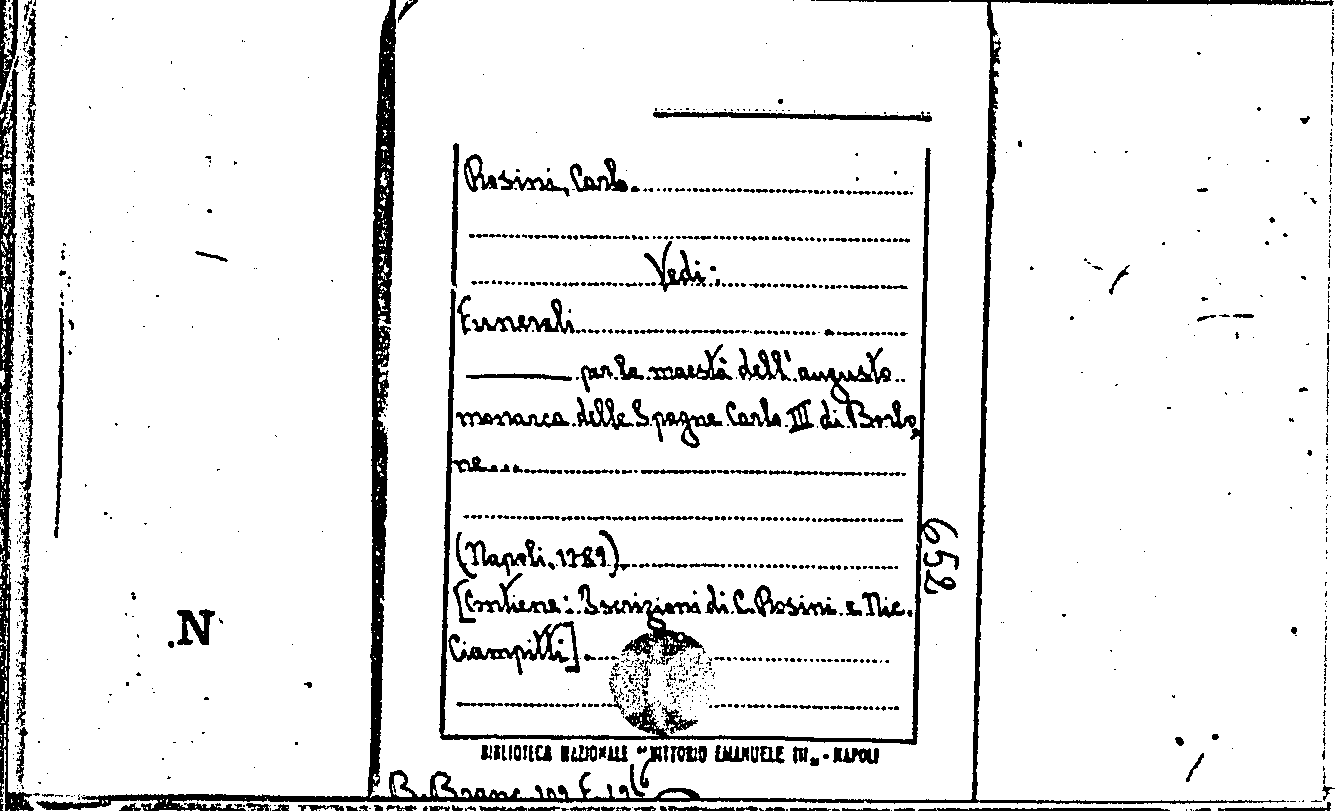 Rosini, Carlo.
Vedi:
Funerali
per la maestà dell'augusto
monarca delle Spagne Carlo III di Borbo,
ne...
(Napoli, 1789).
[Contiene: Iscrizioni di C. Rosini e Nic.
Ciampitti].
652
.N
BIBLIOTECA NAZIONALE "VITTORIO EMANUELE III" - NAPOLI
B. Branc. 109 E